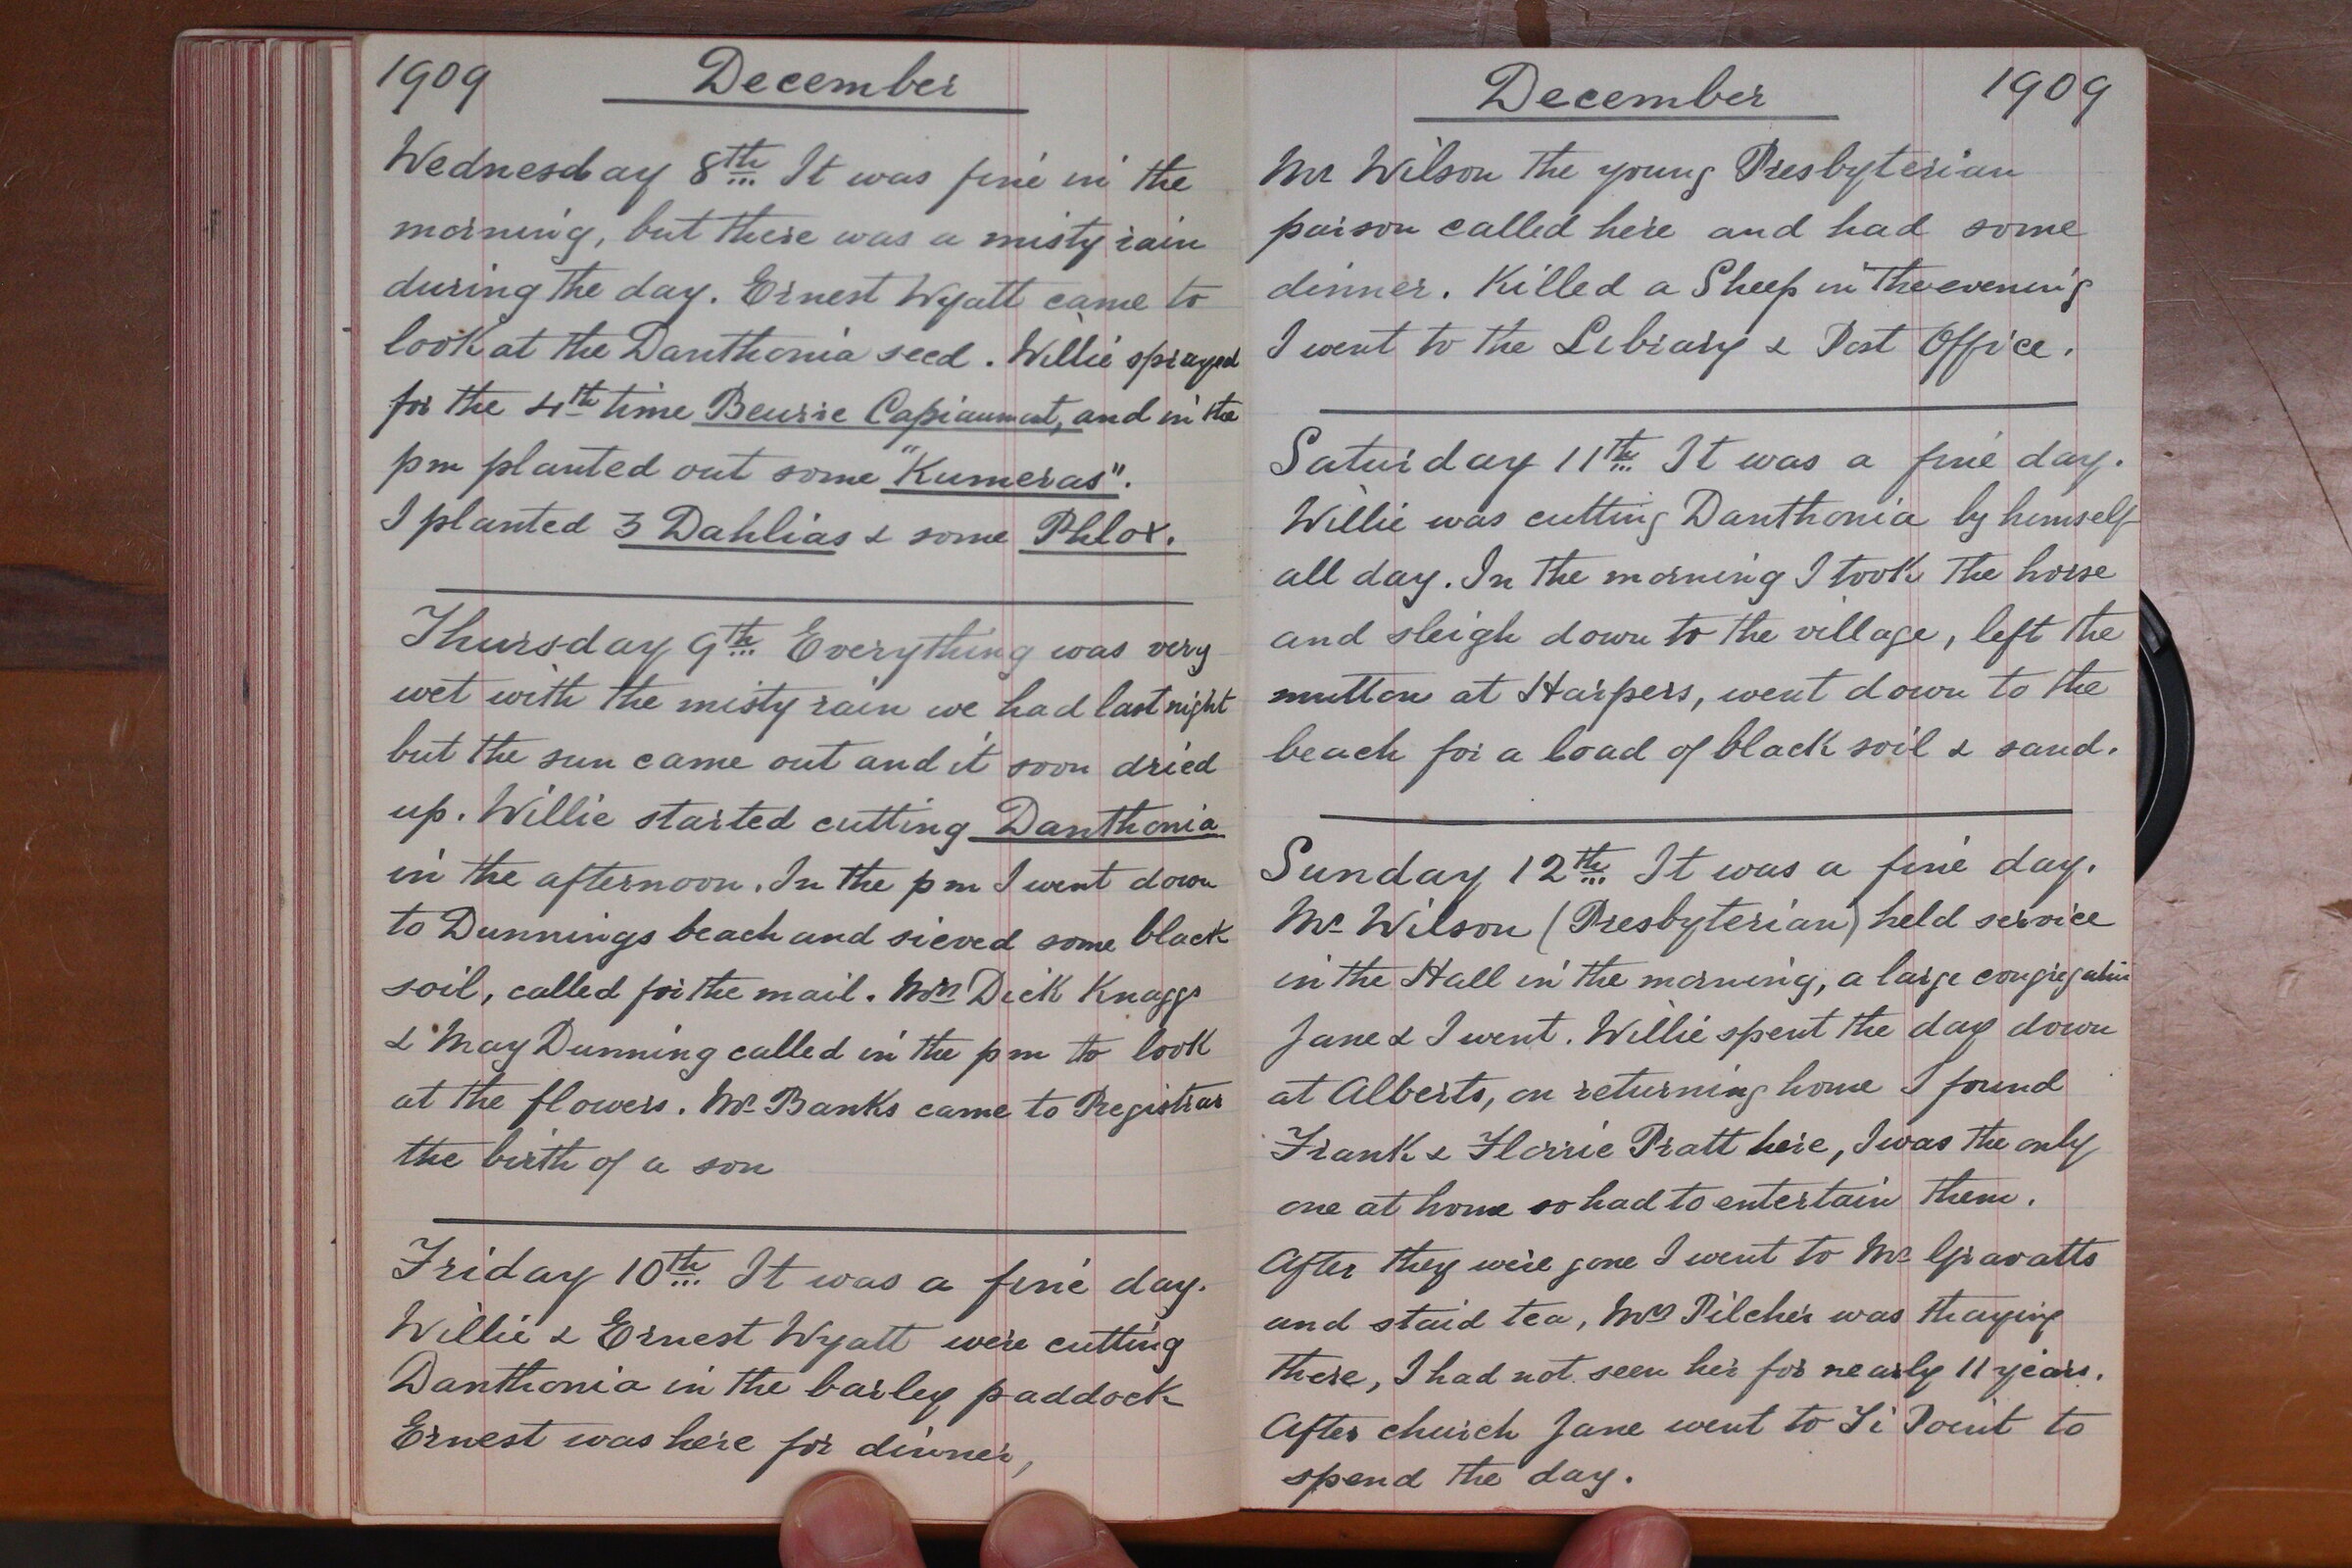 1909 December
Wednesday 8th It was fine in the
morning, but there was a misty rain
during the day. Ernest Wyatt came to
look at the Danthonia seed. Willie sprayed
for the 4th time Beurre Capiaumont, and in the
pm planted out some "Kumeras".
I planted 3 Dahlias & some Phlox.
Thursday 9th Everything was very
wet with the misty rain we had last night
but the sun came out and it soon dried
up. Willie started cutting Danthonia
in the afternoon. In the pm I went down
to Dunnings beach and sieved some black
soil, called for the mail. Mrs Dick Knaggs
& May Dunning called in the pm to look
at the flowers. Mr Banks came to Registrar
the birth of a son
Friday 10th It was a fine day.
Willie & Ernest Wyatt were cutting
Danthonia in the barley paddock
Ernest was here for dinner,
December 1909
Mr Wilson the young Presbyterian
parson called here and had some
dinner. Killed a Sheep in the evening
I went to the Libiary & Post Office.
Saturday 11th It was a fine day.
Willie was cutting Danthonia by himself
all day. In the morning I took the horse
and sleigh down to the village, left the
mutton at Harpers, went down to the
beach for a load of black soil & sand.
Sunday 12th It was a fine day.
Mr Wilson (Presbyterian) held service
in the Hall in the morning, a large congregation
Jane & I went. Willie spent the day down
at Alberts, on returning home I found
Frank & Florrie Pratt here, I was the only
one at home so had to entertain them.
After they were gone I went to Mr Gravatts
and staid tea, Mrs Pilcher was thaying
there, I had not seen her for nearly 11 years.
After church Jane went to Ti Point to
spend the day.